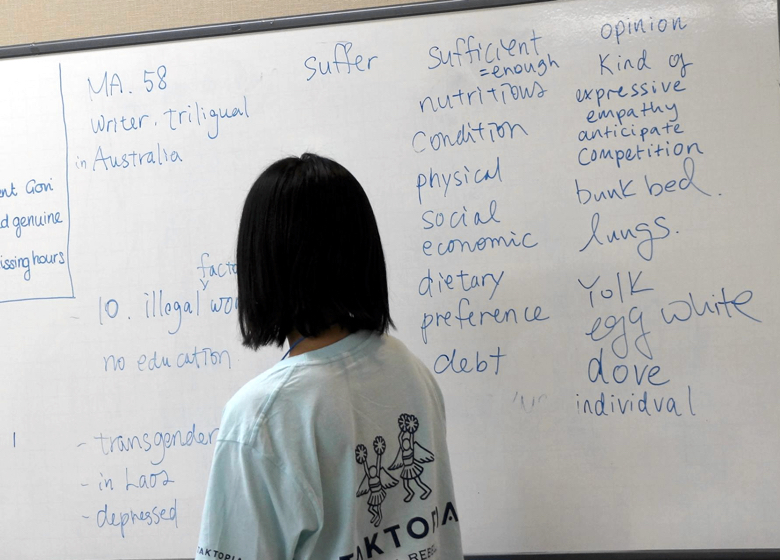 Gori
genuine
hours
MA. 58
writer. triligual
in Australia
10. illegal
no education
- transgender
- in Laos
- depressed
suffer
sufficient
=enough
nutritious
condition
physical
social
economic
dietary
preference
debt
opinion
kind of
expressive
empathy
anticipate
competition
bunk bed.
lungs.
Yolk
egg white
dove
individual
TAKTOPIA